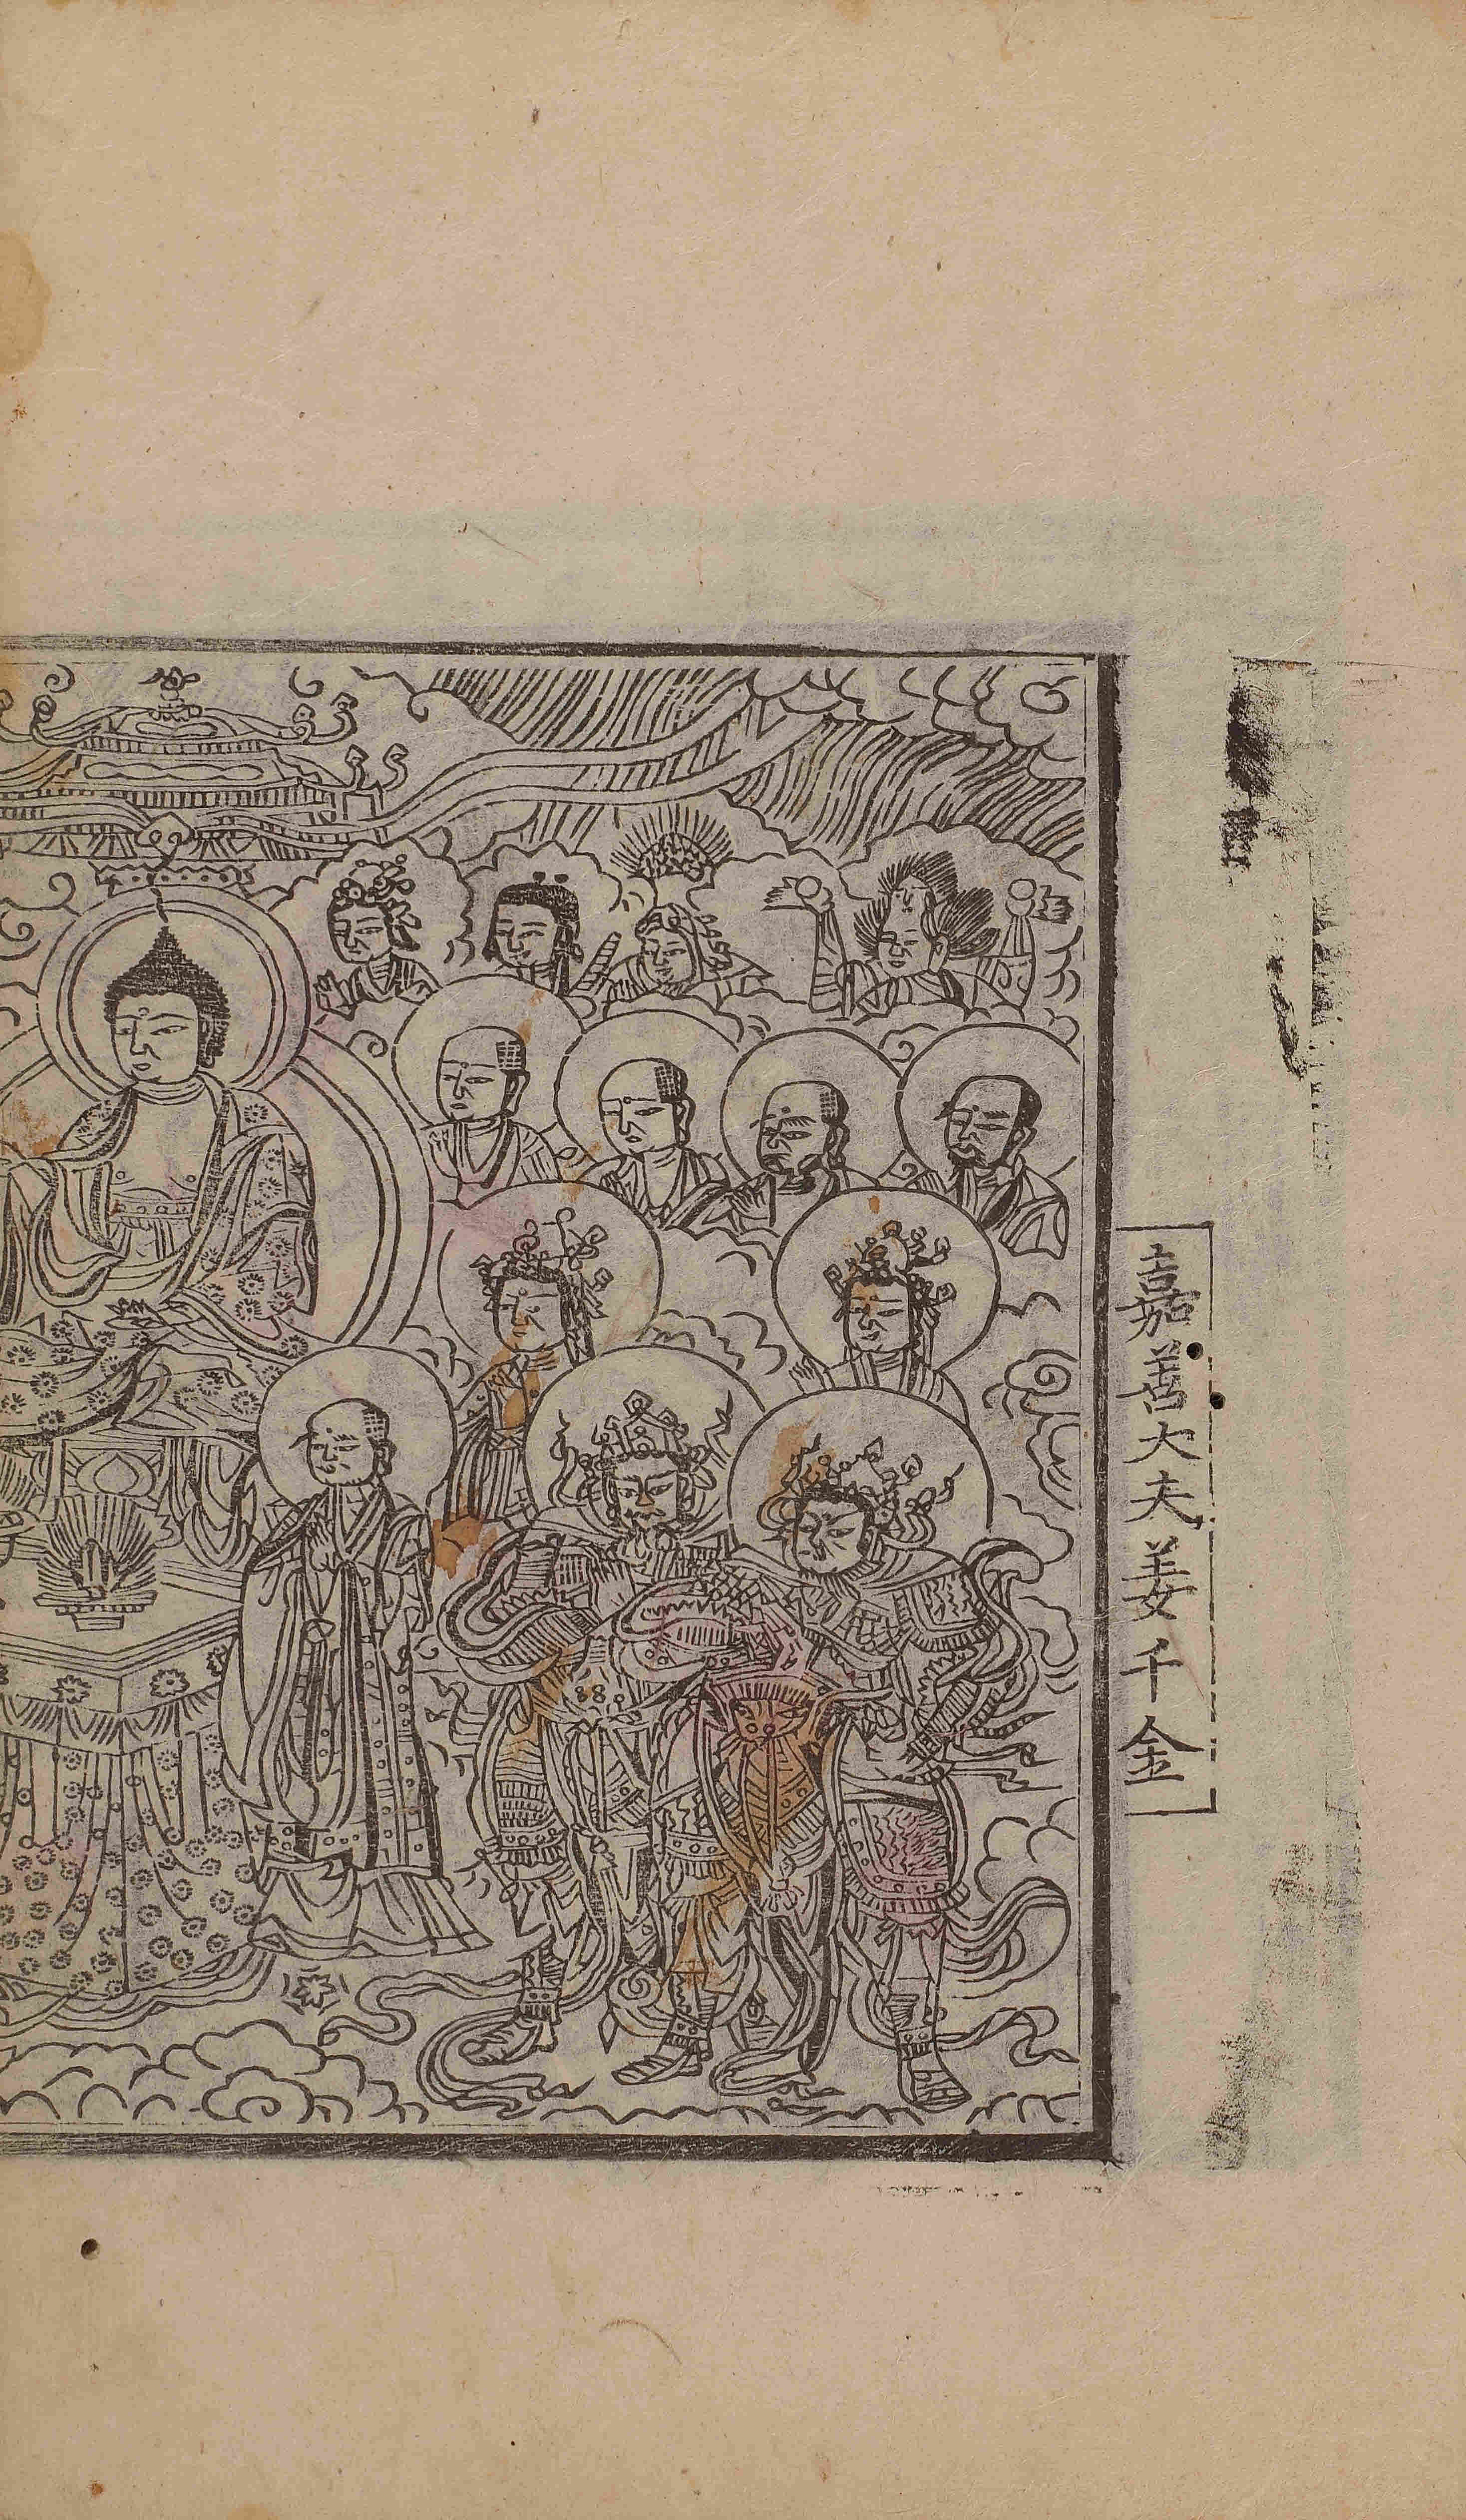 嘉善大夫姜千金